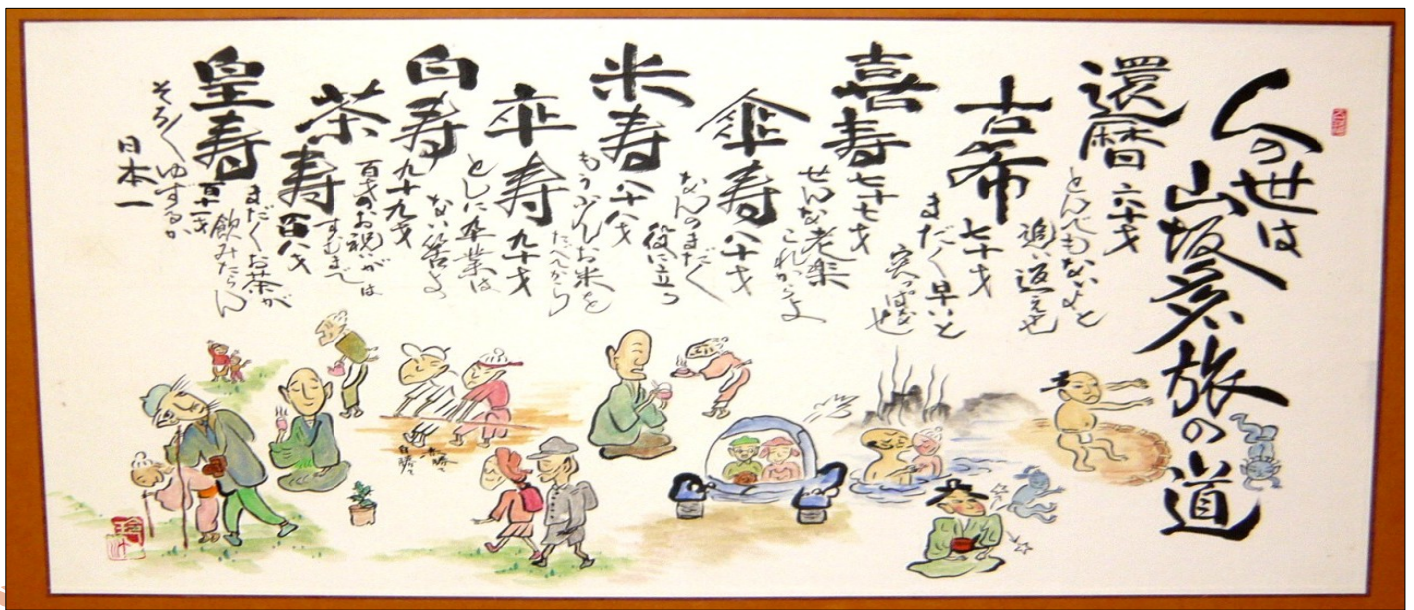 人の世は
山坂多い旅の道
還暦 六十才
とんでもないよと
追い返えせ
古希 七十才
まだ〱早いと
突っぱなせ
喜寿 七十七才
せくな老楽
これからよ
傘寿 八十才
なんのまだ〱
役に立つ
米寿 八十八才
もう少しお米を
たべてから
卒寿 九十才
としに卒業は
ない筈よ
白寿 九十九才
百才のお祝が
すむまでは
茶寿 百八才
まだ〱お茶が
飲みたらん
皇寿 百十一才
そろ〱ゆずるか
日本一